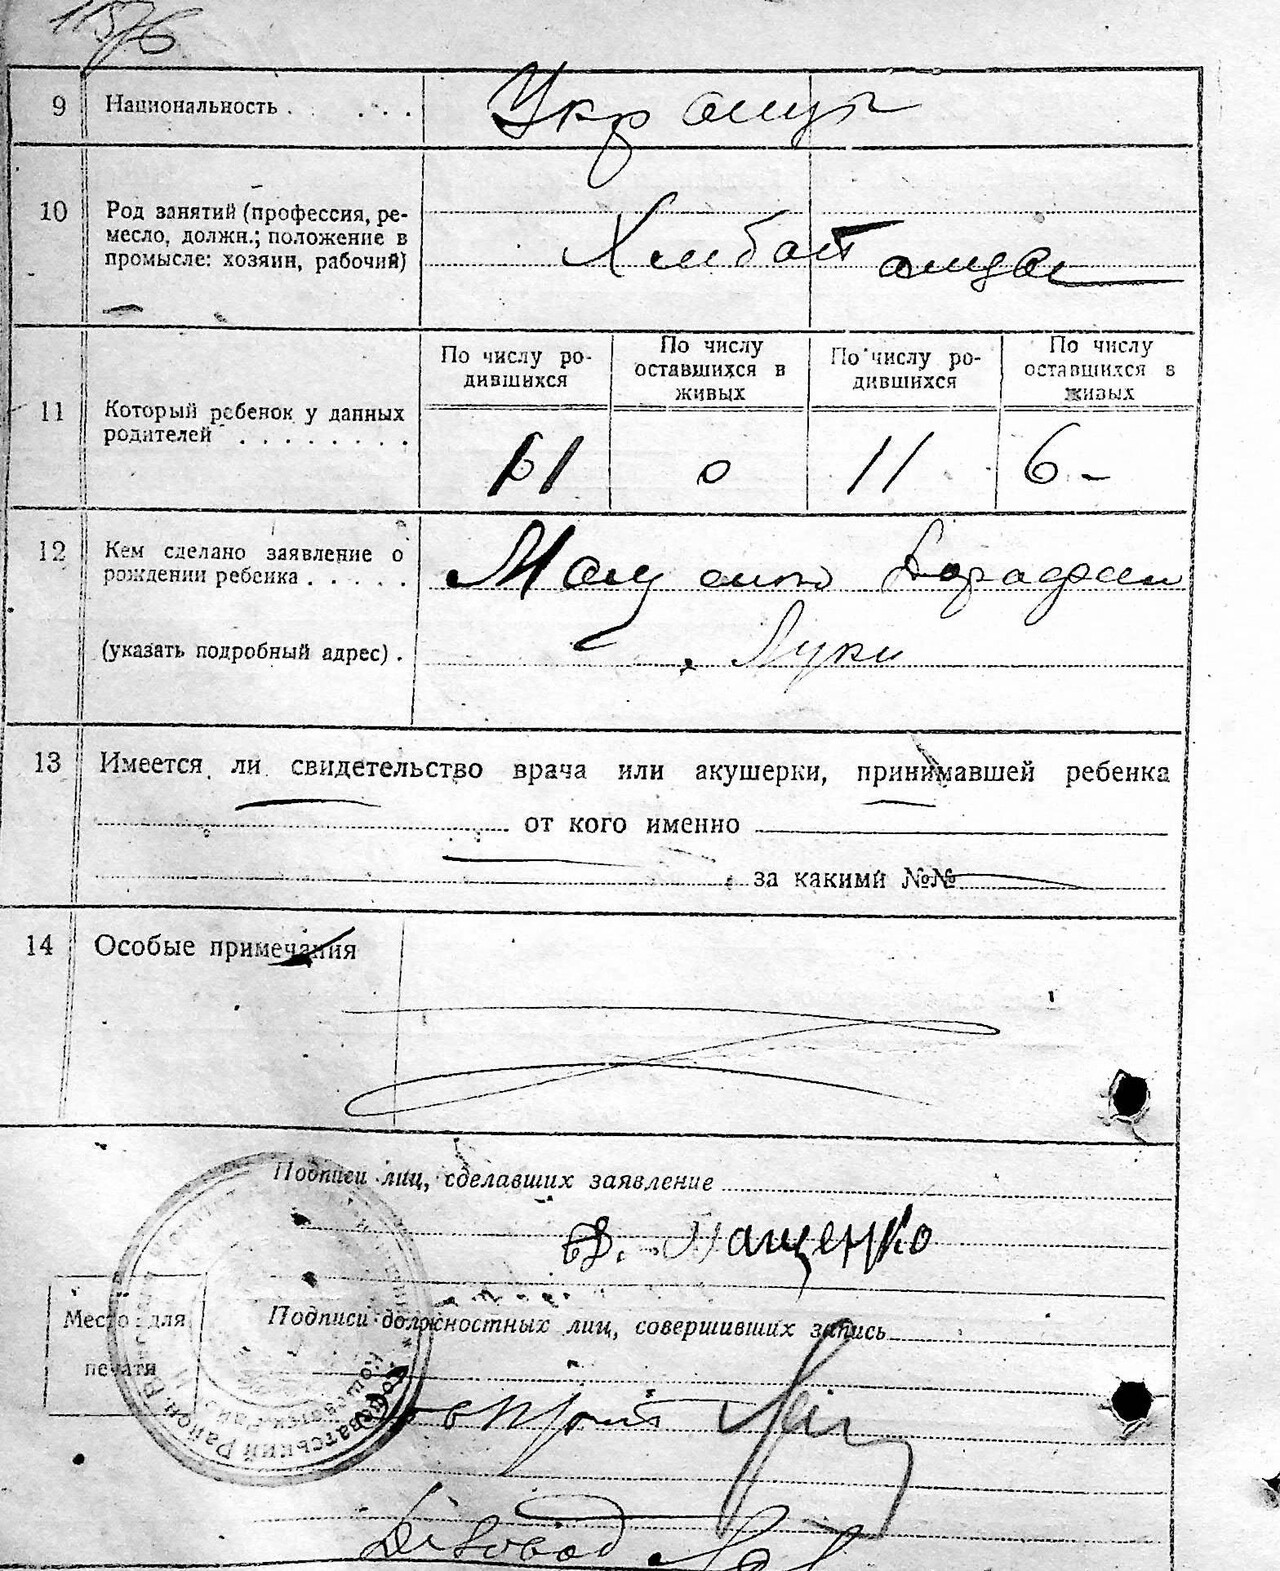 115/6
9 Национальность . . . . .
Украинцы
10 Род занятий (профессия, ре-
месло, должн.; положение в
промысле: хозяин, рабочий)
11 Который ребенок у данных
родителей . . . . . . . .
По числу ро-
дившихся
По числу
оставшихся в
живых
По числу ро-
дившихся
По числу
оставшихся в
живых
11 0 11 6 -
12 Кем сделано заявление о
рождении ребенка . . . . .
(указать подробный адрес) .
Луки
13 Имеется ли свидетельство врача или акушерки, принимавшей ребенка
от кого именно
за какими №№
14 Особые примечания
Подписи лиц, сделавших заявление
Мащенко
Место для
печати
Подписи должностных лиц, совершивших запись
Діловод